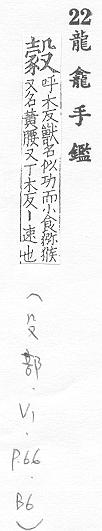 22 龍龕手鑑
豰 呼木反獸名似而小食猕猴
又名黃腰又丁木反丨速也
(殳部.V1.P.66.B6)